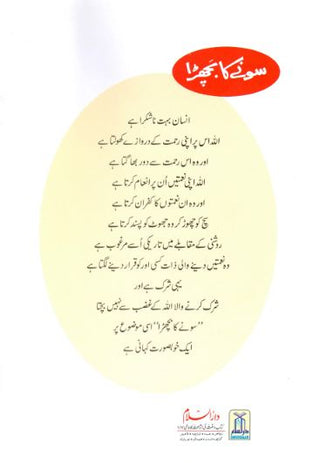 سونے کا بچھڑا
انسان بہت ناشکرا ہے
اللہ اس پر اپنی رحمت کے دروازے کھولتا ہے
اور وہ اس رحمت سے دور بھاگتا ہے
اللہ اپنی نعمتیں اُن پر انعام کرتا ہے
اور وہ ان نعمتوں کا کفران کرتا ہے
سچ کو چھوڑ کر وہ جھوٹ کو پسند کرتا ہے
روشنی کے مقابلے میں تاریکی اُسے مرغوب ہے
وہ نعمتیں دینے والی ذات کسی اور کو قرار دینے لگتا ہے
یہی شرک ہے اور
شرک کرنے والا اللہ کے غضب سے نہیں بچتا
”سونے کا بچھڑا“ اسی موضوع پر
ایک خوبصورت کہانی ہے
دارالسلام
دارالسلام